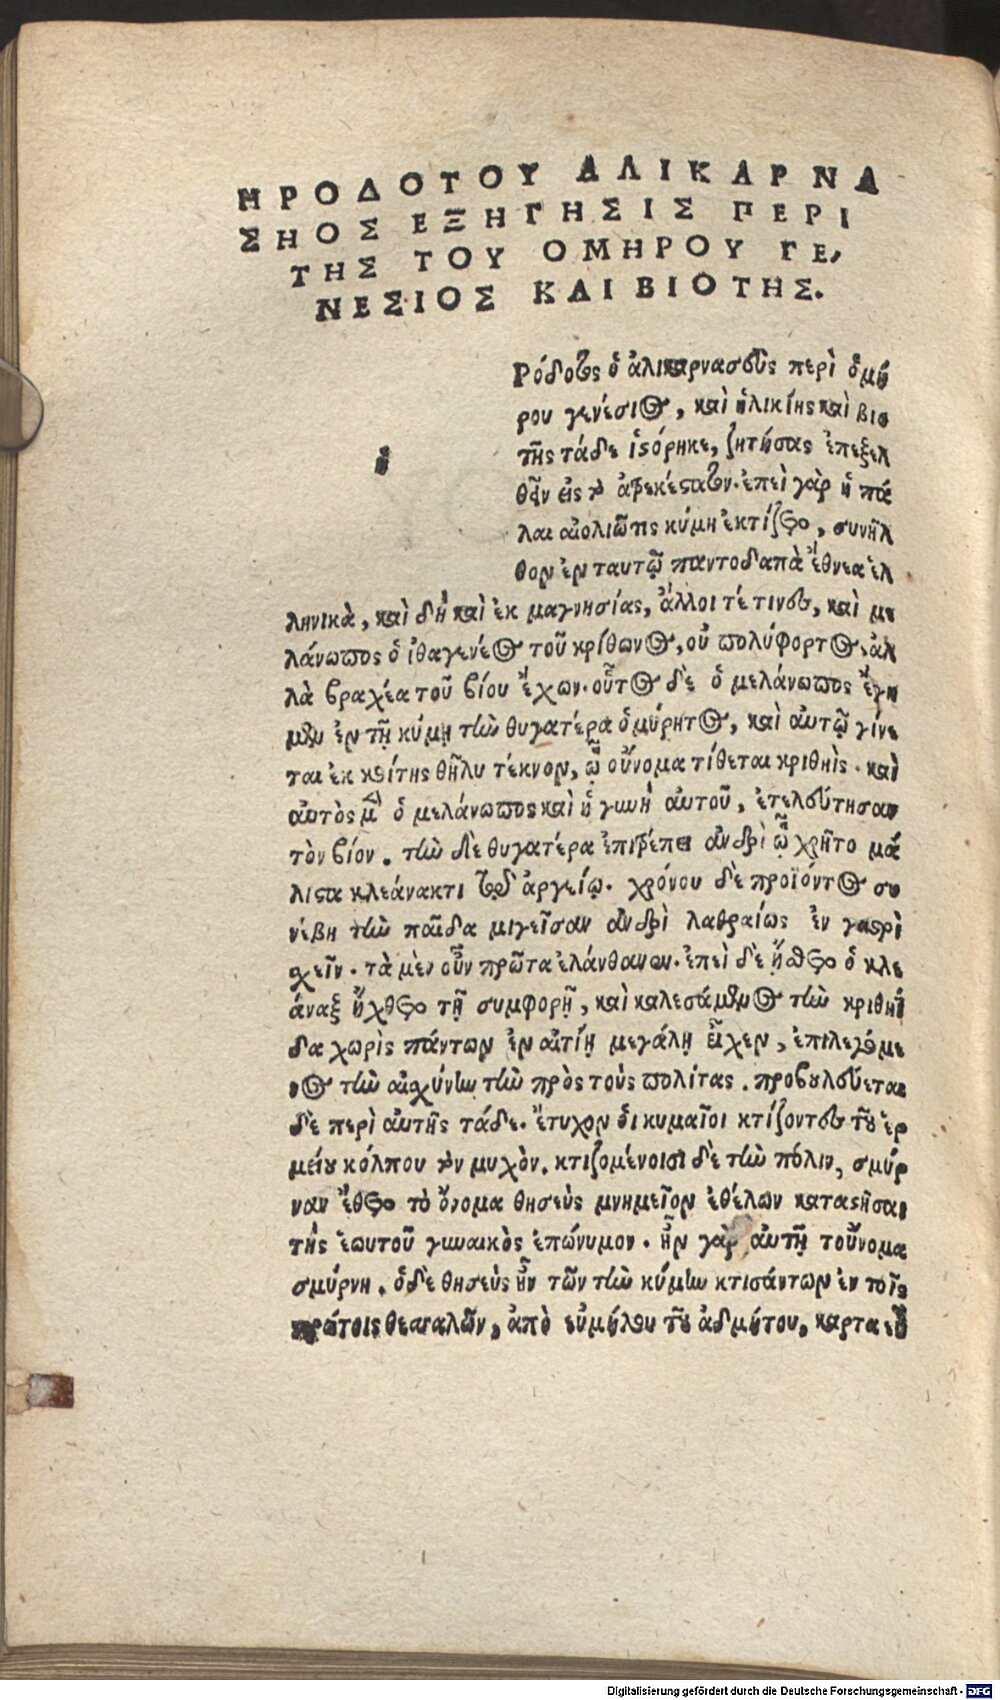 ΗΡΟΔΟΤΟΥ ΑΛΙΚΑΡΝΑ
ΣΗΟΣ ΕΞΗΓΗΣΙΣ ΠΕΡΙ
ΤΗΣ ΤΟΥ ΟΜΗΡΟΥ ΓΕ,
ΝΕΣΙΟΣ ΚΑΙ ΒΙΟΤΗΣ.
Ρόδοτος ὁ ἁλικαρνασεὺς περὶ ὁμή
ρου γενέσιος, καὶ ἡλικίης καὶ βιο
τῆς τάδε ἱστόρηκε, ζητήσας ἐπεξελ
ἡ
θεῖν εἰς τὸ ἀτρεκέστατον. ἐπεὶ γὰρ ἡ πά
λαι αἰολιῶτις κύμη ἐκτίζετο, συνῆλ
θον ἐν ταυτῷ παντοδαπὰ ἔθνεα ἑλ
ληνικὰ, καὶ δὴ καὶ ἐκ μαγνησίας, ἄλλοι τέ τινες, καὶ με
λάνωπος ὁ ἰθαγενέος τοῦ κρίθωνος, οὐ πολύφορτος, ἀλ
λὰ βραχέα τοῦ βίου ἔχων. οὗτος δὲ ὁ μελάνωπος ἔγη
μεν ἐν τῇ κύμῃ τὴν θυγατέρα ὁμύρητος, καὶ αὐτῷ γίνε
ται ἐκ κοίτης θῆλυ τέκνον, ᾧ οὔνομα τίθεται κριθηίς. καὶ
αὐτὸς μὲν ὁ μελάνωπος καὶ ἡ γυνὴ αὐτοῦ, ἐτελεύτησαν
τὸν βίον. τὴν δὲ θυγατέρα ἐπιτρέπει ἀνδρὶ ᾧ χρῆτο μά
λιστα κλεάνακτι τῷ ἀργείῳ. χρόνου δὲ προϊόντος συ
νέβη τὴν παῖδα μιγεῖσαν ἀνδρὶ λαθραίως ἐν γαστρὶ
σχεῖν. τὰ μὲν οὖν πρῶτα ἐλάνθανεν. ἐπεὶ δὲ ᾔσθετο ὁ κλε
άναξ ἤχθετο τῇ συμφορῇ, καὶ καλεσάμενος τὴν κριθηί
δα χωρὶς πάντων ἐν αἰτίῃ μεγάλῃ εἶχεν, ἐπιλεγόμε
νος τὴν αἰσχύνην τὴν πρὸς τοὺς πολίτας. προβουλεύεται
δὲ περὶ αὐτῆς τάδε. ἔτυχον οἱ κυμαῖοι κτίζοντες τοῦ ἑρ
μείου κόλπου τὸν μυχὸν. κτιζομένοισι δὲ τὴν πόλιν, σμύρ
ναν ἔθετο τὸ ὄνομα θησεὺς μνημεῖον ἐθέλων καταστῆσαι
τῆς ἑωυτοῦ γυναικὸς ἐπώνυμον. ἦν γὰρ αὐτῇ τοὔνομα
σμύρνη. ὁ δὲ θησεὺς ἦν τῶν τὴν κύμην κτισάντων ἐν τοῖς
πρώτοις θεσσαλῶν, ἀπὸ εὐμήλου τοῦ ἀδμήτου, κάρτα εὖ
Digitalisierung gefördert durch die Deutsche Forschungsgemeinschaft - DFG